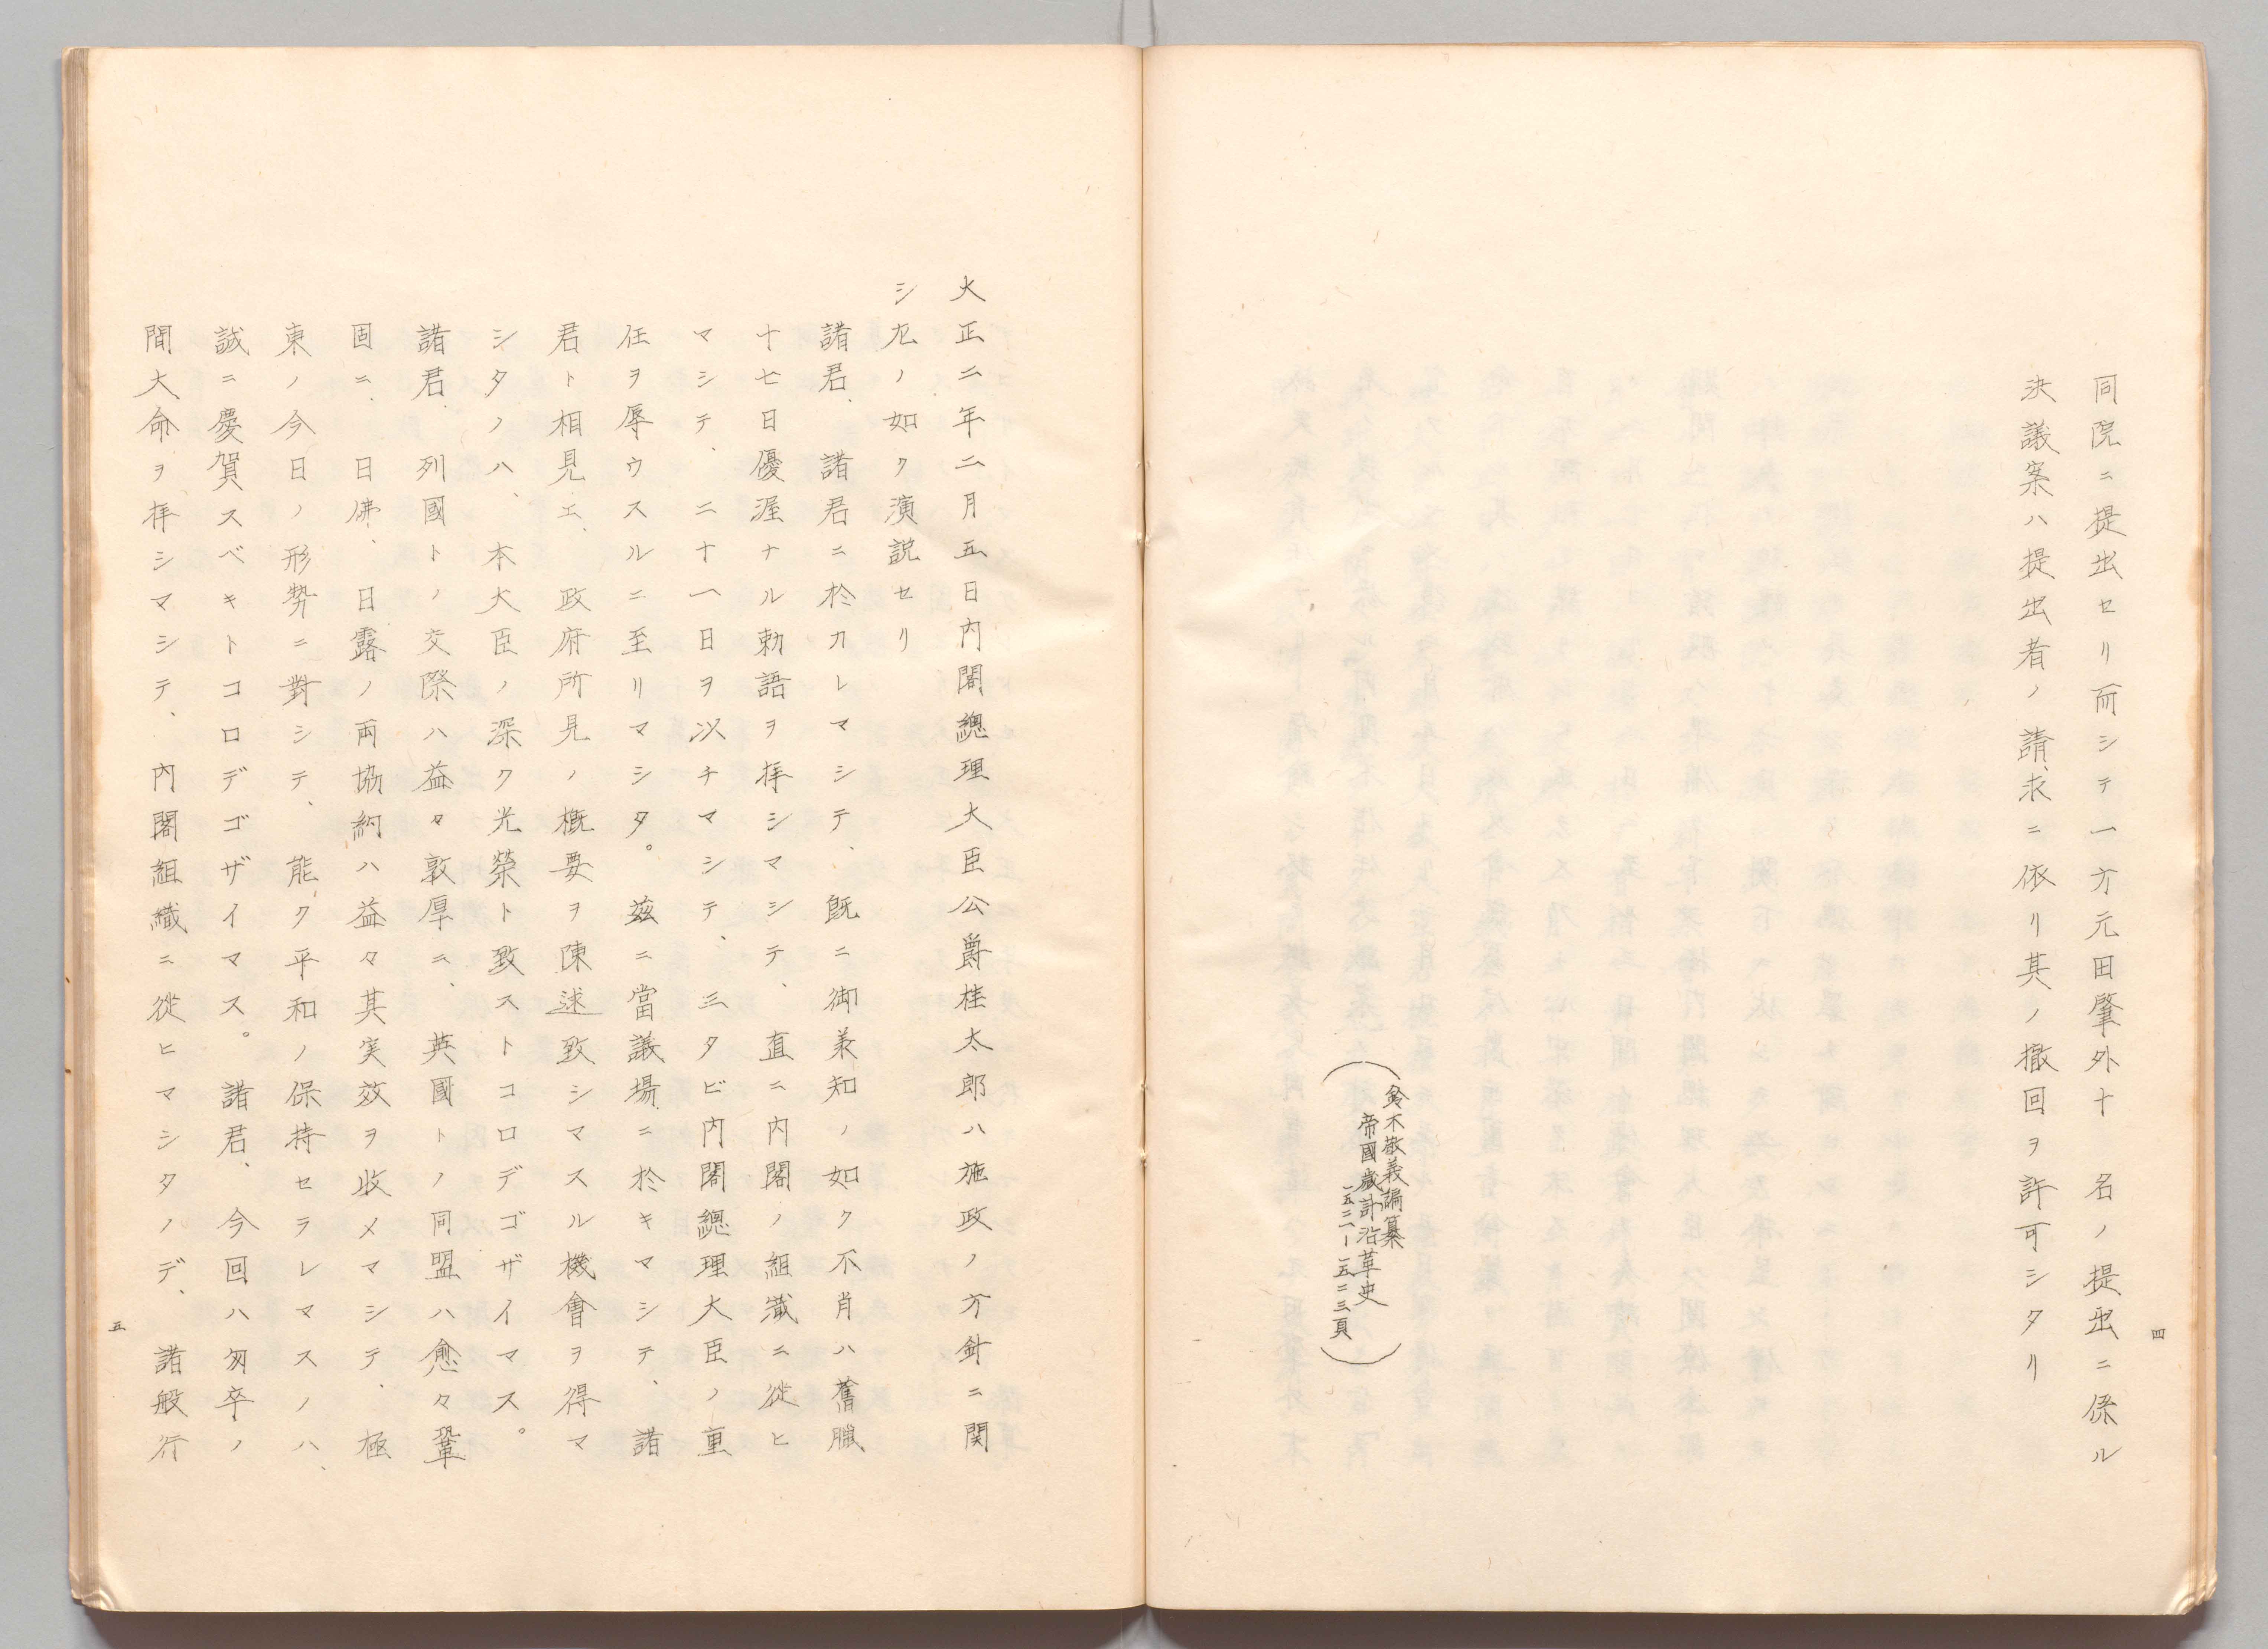 同院ニ提出セリ而シテ一方元田肇外十　名ノ提出ニ係ル
決議案ハ提出者ノ請求ニ依リ其ノ撤回ヲ許可シタリ
（鈴木敬義編纂
帝國歳計沿革史
一五二一－一五二三頁）
四
大正二年二月五日内閣總理大臣公爵桂太郎ハ施政ノ方針ニ関
シ左ノ如ク演説セリ
諸君、諸君ニ於カレマシテ、既ニ御承知ノ如ク不肖ハ舊臘
十七日優渥ナル勅語ヲ拝シマシテ、直ニ内閣ノ組識ニ從ヒ
マシテ、二十一日ヲ以チマシテ、三タビ内閣總理大臣ノ重
任ヲ辱ウスルニ至リマシタ。茲ニ當議場ニ於キマシテ、諸
君ト相見エ、政府所見ノ概要ヲ陳述致シマスル機會ヲ得マ
シタノハ、本大臣ノ深ク光榮ト致ストコロデゴザイマス。
諸君、列國トノ交際ハ益々敦厚ニ、英國トノ同盟ハ愈々鞏
固ニ、日佛、日露ノ兩協約ハ益々其実效ヲ收メマシテ、極
東ノ今日ノ形勢ニ對シテ、能ク平和ノ保持セラレマスノハ、
誠ニ慶賀スベキトコロデゴザイマス。諸君、今回ハ匆卒ノ
間大命ヲ拝シマシテ、内閣組織ニ從ヒマシタノデ、諸般行
五